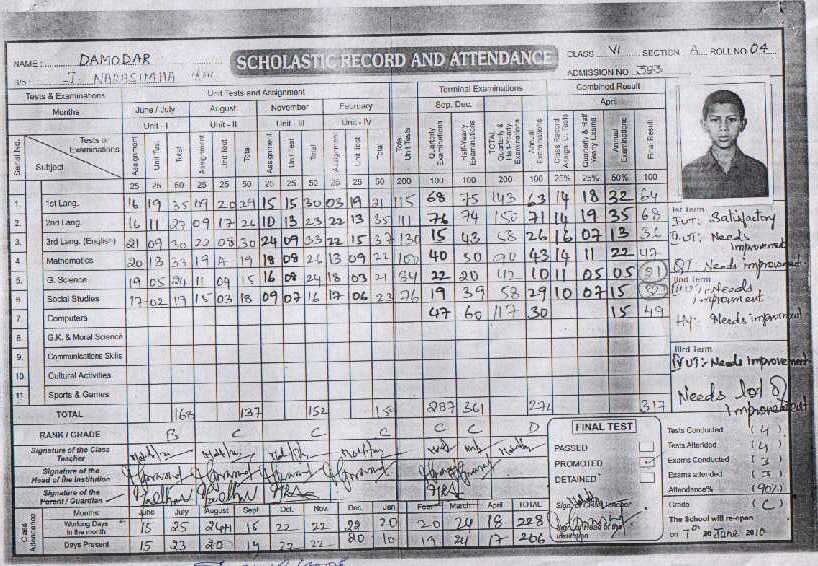 NAME : DAMODAR
SCHOLASTIC RECORD AND ATTENDANCE
CLASS VI SECTION A ROLL NO 04
ADMISSION NO 383
Tests & Examinations Unit Tests and Assignment Terminal Examinations Combined Result
Months June / July August November February Sep. Dec. April
Unit - I Unit - II Unit - III Unit - IV
Serial No. Subject Tests or Examinations
Assignment Unit Test Total Assignment Unit Test Total Assignment Unit Test Total Assignment Unit Test Total Total Unit Tests Quarterly Examinations Half-Yearly Examinations TOTAL Quarterly & Half-Yearly Examinations Annual Examinations Class Record Assign. U. Tests Quarterly & Half Yearly Exams Annual Examinations Final Result
25 25 50 25 25 50 25 25 50 25 25 50 200 100 100 200 100 25% 25% 50% 100
1. 1st Lang. 16 19 35 09 20 29 15 15 30 03 19 21 115 68 75 143 63 14 18 32 64
2. 2nd Lang. 16 11 27 09 17 26 10 13 23 22 13 35 111 76 74 150 71 14 19 35 68
3. 3rd Lang. (English) 21 09 30 22 08 30 24 09 33 22 15 37 130 15 43 58 26 16 07 13 36
4. Mathematics 20 13 33 19 19 18 08 26 13 09 22 40 50 43 14 11 22 47
5. G. Science 19 05 24 11 04 15 16 08 24 18 03 21 84 22 20 42 10 11 05 05
6. Social Studies 17 02 19 15 03 18 09 07 16 17 06 23 76 19 39 58 29 10 07 15
7. Computers 47 60 117 30 15 49
8. G.K. & Moral Science
9. Communications Skills
10. Cultural Activities
11 Sports & Games
TOTAL 168 137 152 287 361 272 317
RANK / GRADE B C C C C C D
Signature of the Class Teacher
Signature of the Head of the Institution
Signature of the Parent / Guardian
Class Attendance
Months June July August Sept Oct. Nov. Dec. Jan Feb March April TOTAL
Working Days in the month 15 25 24 15 22 22 22 20 20 24 18 228
Days Present 15 23 20 14 22 22 20 10 19 21 17 206
Ist Term
I UT: Satisfactory
II UT: Needs improvement
QT Needs improvement
IInd Term
III UT: Needs improvement
Hy: Needs improvement
IIIrd Term
IV UT:- Needs improvement
Needs lot of Improvement
FINAL TEST
PASSED
PROMOTED
DETAINED
Sign. of Class Teacher
Sign. of Head of the Institution
Tests Conducted ( 4 )
Tests Attended ( 4 )
Exams Conducted ( 3 )
Exams attended ( 3 )
Attendance% (90%)
Grade ( C )
The School will re-open
on 7th June 2010